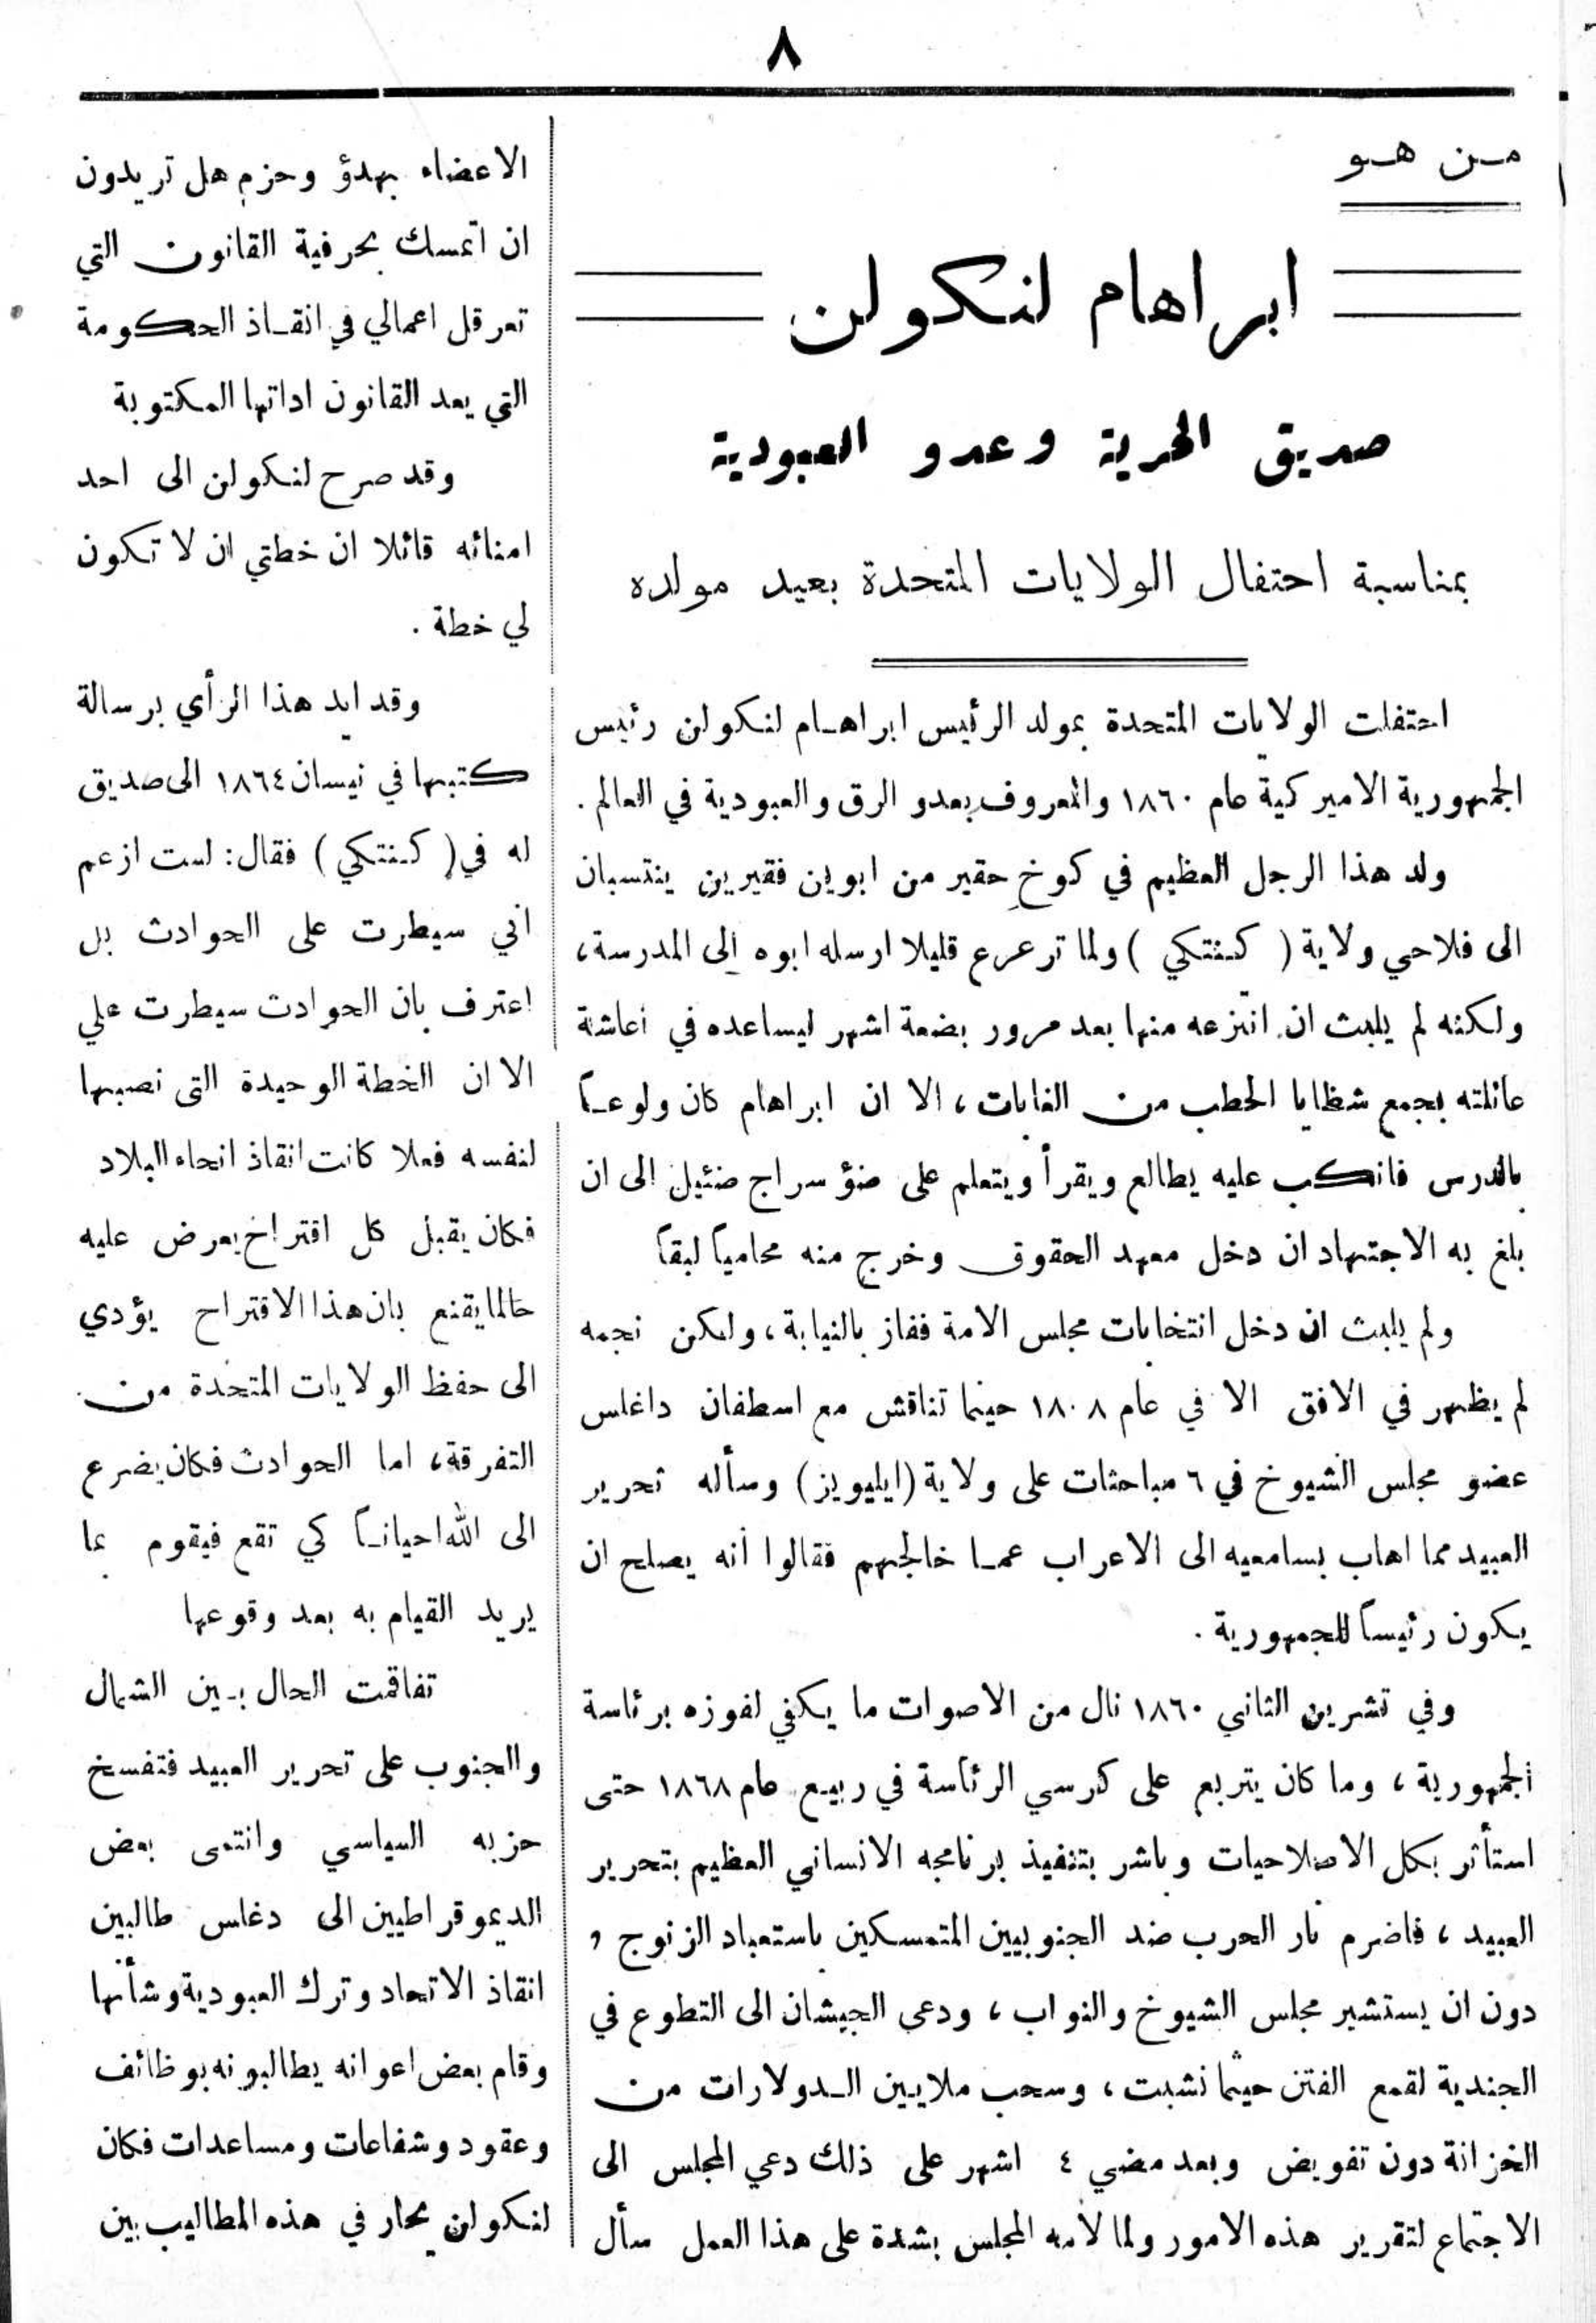 ٨
من هو
ابراهام لنكولن
صديق الحرية وعدو العبودية
بمناسبة احتفال الولايات المتحدة بعيد مولده
احتفلت الولايات المتحدة بمولد الرئيس ابراهام لنكولن رئيس
الجمهورية الاميركية عام ١٨٦٠ والمعروف بعدو الرق والعبودية في العالم .
ولد هذا الرجل العظيم في كوخ حقير من ابوين فقيرين ينتسبان
الى فلاحي ولاية ( كنتكي ) ولما ترعرع قليلا ارسله ابوه إلى المدرسة،
ولكنه لم يلبث ان انتزعه منها بعد مرور بضعة اشهر ليساعده في اعاشة
عائلته بجمع شظايا الحطب من الغابات ، الا ان ابراهام كان ولوعاً
بالدرس فانكب عليه يطالع ويقرأ ويتعلم على ضؤ سراج ضئيل الى ان
بلغ به الاجتهاد ان دخل معهد الحقوق وخرج منه محامياً لبقاً
ولم يلبث ان دخل انتخابات مجلس الامة ففاز بالنيابة ، ولكن نجمه
لم يظهر في الافق الا في عام ١٨٠٨ حينما تناقش مع اسطفان داغلس
عضو مجلس الشيوخ في ٦ مباحثات على ولاية (ايليويز) ومسأله تحرير
العبيد مما اهاب بسامعيه الى الاعراب عما خالجهم فقالوا أنه يصلح ان
يكون رئيساً للجمهورية .
وفي تشرين الثاني ١٨٦٠ نال من الاصوات ما يكفي لفوزه برئاسة
الجمهورية ، وما كان يتربع على كرسي الرئاسة في ربيع عام ١٨٦٨ حتى
استأثر بكل الاصلاحيات وباشر بتنفيذ برنامجه الانساني العظيم بتحرير
العبيد ، فاضرم نار الحرب ضد الجنوبيين المتمسكين باستعباد الزنوج ,
دون ان يستشير مجلس الشيوخ والنواب ، ودعى الجيشان الى التطوع في
الجندية لقمع الفتن حيثما نشبت ، وسحب ملايين الدولارات من
الخزانة دون تفويض وبعد مضي ٤ اشهر على ذلك دعي المجلس الى
الاجتماع لتقرير هذه الامور ولما لامه المجلس بشدة على هذا العمل سأل
الاعضاء بهدؤ وحزم هل تريدون
ان اتمسك بحرفية القانون التي
تعرقل اعمالي في انقاذ الحكومة
التي يعد القانون اداتها المكتوبة
وقد صرح لنكولن الى احد
امنائه قائلا ان خطتي ان لا تكون
لي خطة .
وقد ايد هذا الرأي برسالة
كتبها في نيسان ١٨٦٤ الى صديق
له في ( كنتكي ) فقال : لست ازعم
اني سيطرت على الحوادث بل
اعترف بان الحوادث سيطرت علي
الا ان الخطة الوحيدة التى نصبها
لنفسه فعلا كانت انقاذ انحاء البلاد
فكان يقبل كل اقتراح يعرض عليه
حالما يقنع بان هذا الاقتراح يؤدي
الى حفظ الولايات المتحدة من
التفرقة ، اما الحوادث فكان يضرع
الى الله احياناً كي تقع فيقوم بما
يريد القيام به بعد وقوعها
تفاقمت الحال بين الشمال
والجنوب على تحرير العبيد فتفسخ
حزبه السياسي وانتمى بعض
الديموقراطيين الى دغلس طالبين
انقاذ الاتحاد وترك العبودية وشأنها
وقام بعض اعوانه يطالبونه بوظائف
وعقود وشفاعات ومساعدات فكان
لنكولن يحار في هذه المطاليب بين